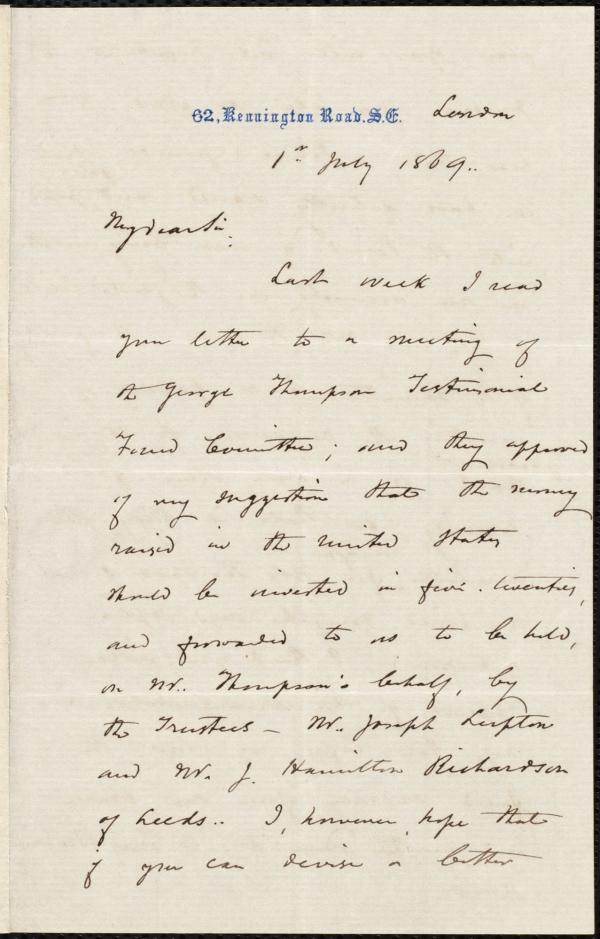 62, Kennington Road. S.E. London
1st July 1869..
My dear Sir:
Last week I read
your letter to a meeting of
the George Thompson Testimonial
Fund Committee; and they approved
of my suggestion that the money
raised in the United States
should be invested in five-twenties,
and forwarded to us to be held,
on Mr. Thompson's behalf, by
the Trustees – Mr. Joseph Lupton
and Mr. J. Hamilton Richardson
of Leeds.. I, however, hope that
if you can devise a better